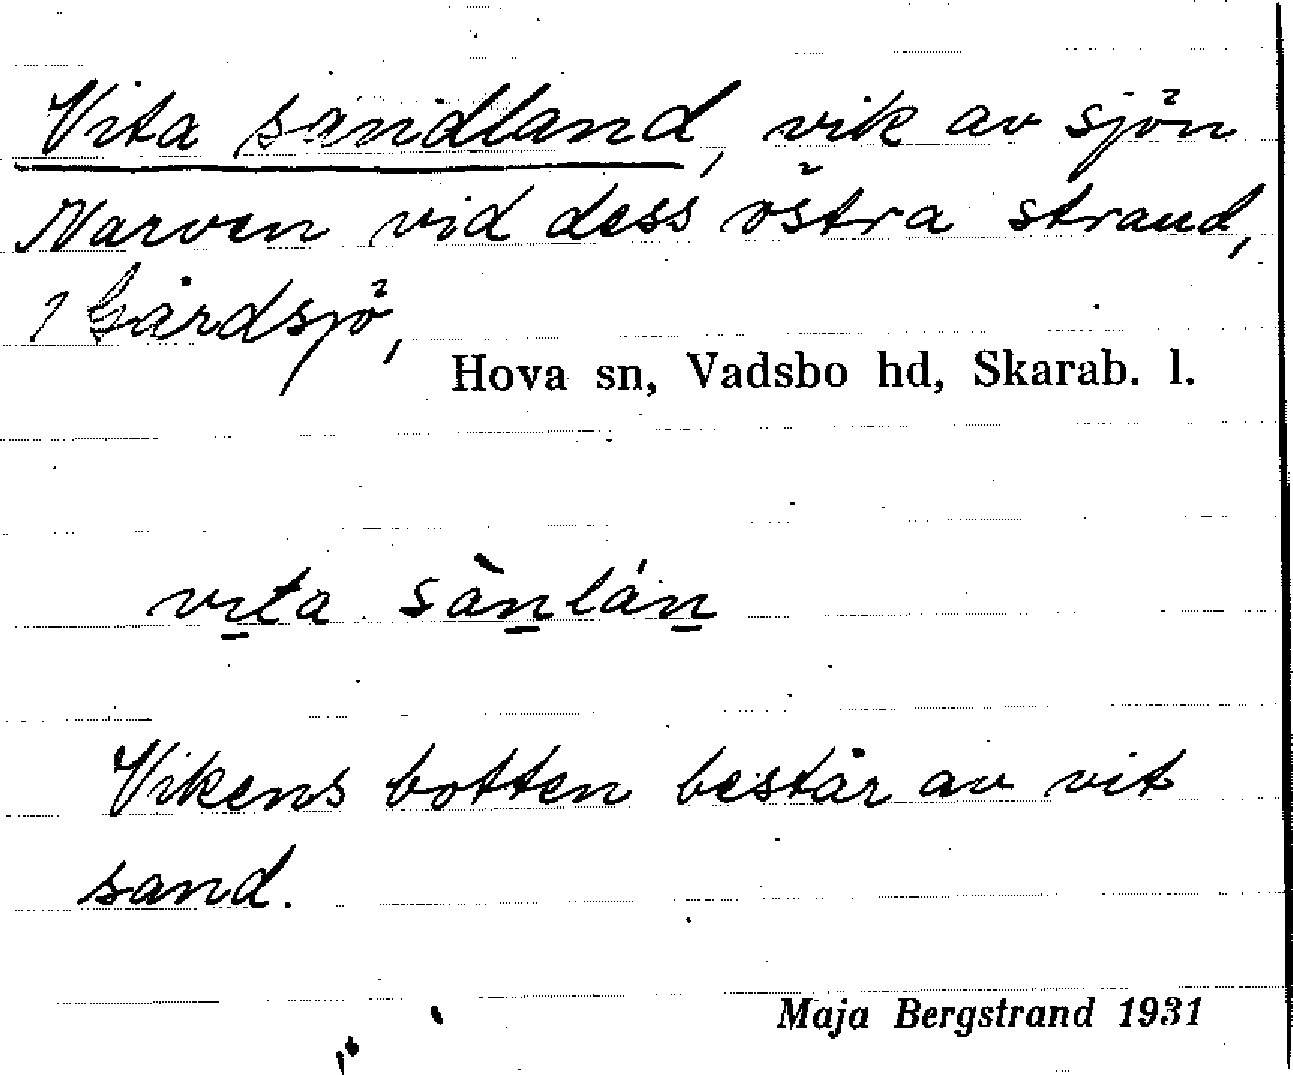 Vita sandland, vik av sjön
Narven vid dess östra strand,
i Gårdsjö,
Hova sn, Vadsbo hd, Skarab. l.
vıta sànlán
Vikens botten består av vit
sand.
Maja Bergstrand 1931